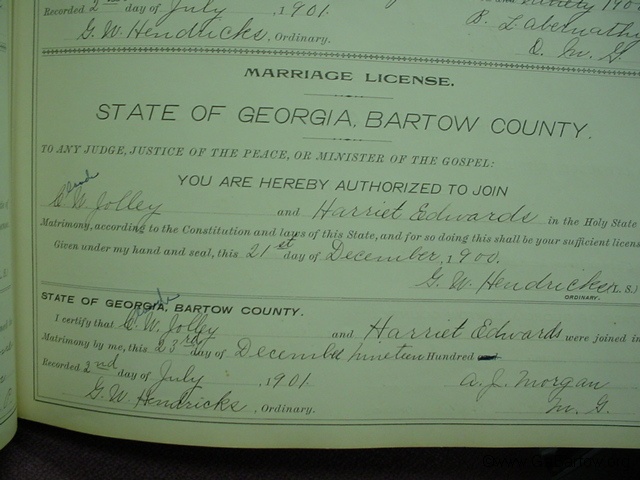 Recorded 2nd day of July , 1901.
G. W. Hendricks, Ordinary.
B. L. Abernathy
MARRIAGE LICENSE.
STATE OF GEORGIA, BARTOW COUNTY.
TO ANY JUDGE, JUSTICE OF THE PEACE, OR MINISTER OF THE GOSPEL:
YOU ARE HEREBY AUTHORIZED TO JOIN
W. Jolley and Harriet Edwards in the Holy State
Matrimony, according to the Constitution and laws of this State, and for so doing this shall be your sufficient licens
Given under my hand and seal, this 21st day of December, 1900.
G. W. Hendricks (L. S.)
ORDINARY.
STATE OF GEORGIA, BARTOW COUNTY.
I certify that W. Jolley and Harriet Edwards were joined in
Matrimony by me, this 23rd day of December nineteen Hundred
Recorded 2nd day of July , 1901. A. J. Morgan
G. W. Hendricks, Ordinary. M. G.